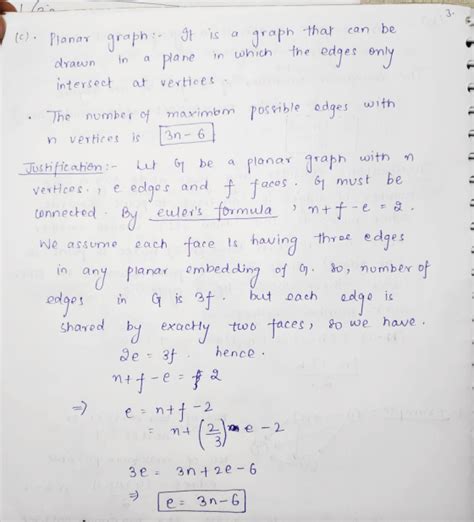 3.
(c). Planar graph:- It is a graph that can be
drawn in a plane in which the edges only
intersect at vertices.
. The number of maximbm possible edges with
n vertices is 3n-6
Justification:- Let G be a planar graph with n
vertices, e edges and f faces. G must be
connected. By euler's formula, n+f-e=2.
We assume each face is having three edges
in any planar embedding of G. so, number of
edges in G is 3f. but each edge is
shared by exactly two faces, so we have.
2e = 3f. hence.
n+f-e = 2
⇒ e = n+f-2
= n+(2/3) e -2
3e = 3n+2e-6
⇒ e = 3n-6